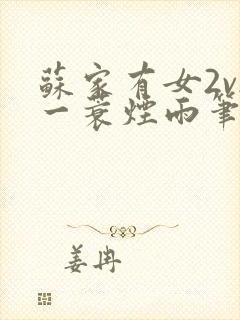 蘇家有女2v
一蓑煙雨筆
姜冉